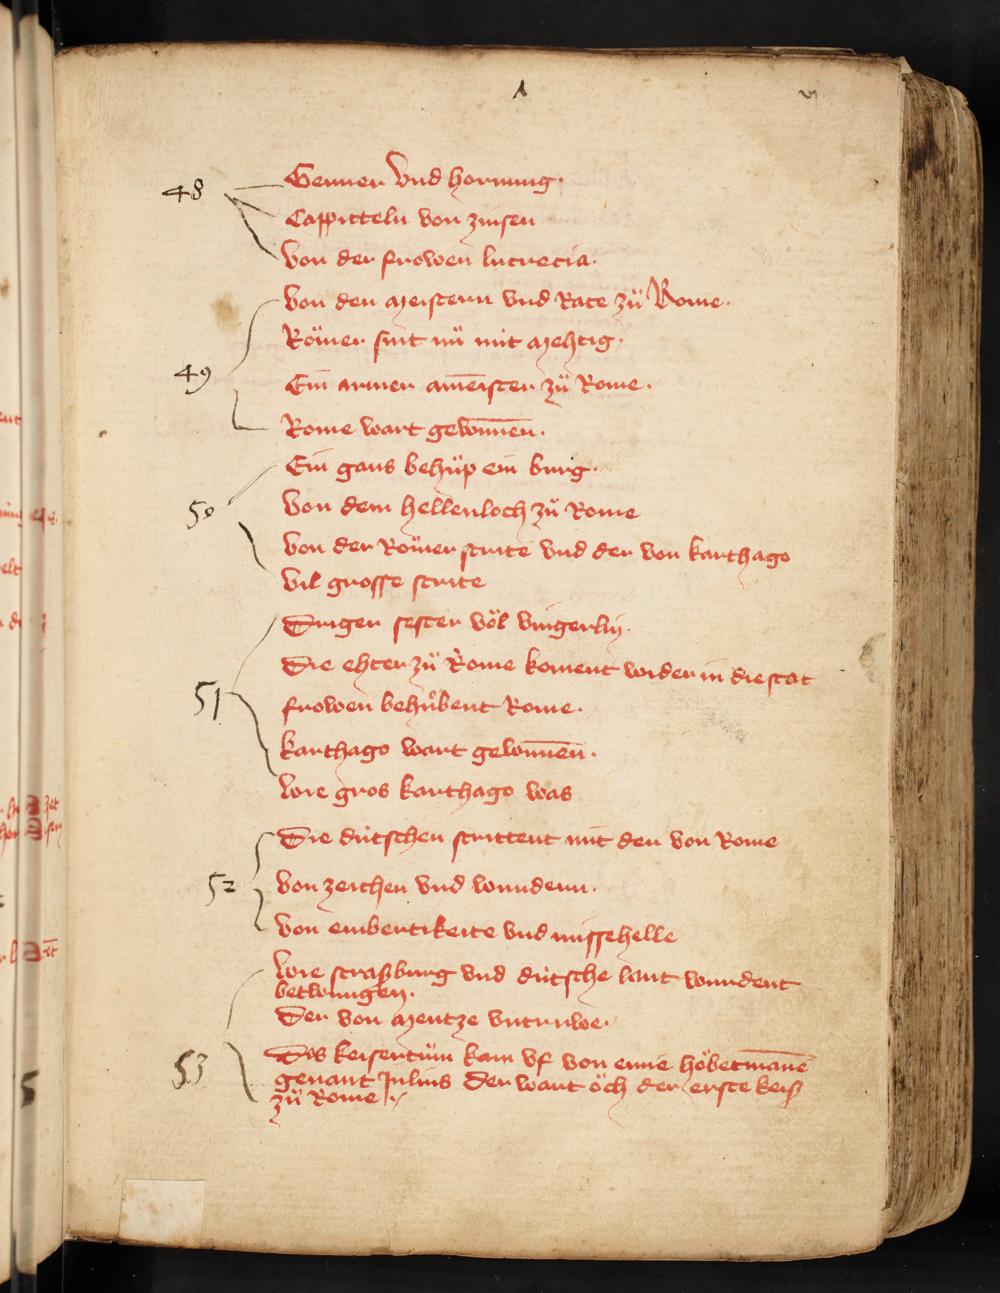 48
Genner vnd hornung.
Cappitteln von zinsen
Von der frowen lucrecia.
Von den meistern vnd Rate zü Rome.
49
Römer sint nü mit mehtig.
Ein armer ameister zü Rome.
Rome wart gewunnen.
50
Ein gans behüp ein burg.
Von dem hellenloch zü Rome
Von der Römer strite vnd der von karthago
vil grosse strite
51
Driger sester völ vingerlin.
Die ehter zü Rome koment wider in die stat
frowen behübent Rome.
karthago wart gewunnen.
wie gros karthago was
52
Die dütschen strittent mit den von Rome
Von zeichen vnd wundern.
Von einbertikeite vnd missehelle
53
wie straßburg vnd dütsche lant wurdent
betwungen.
Der von mentze vntruwe.
Das keisertüm kam vf von eime höbetmanne
genant Julius Der wart öch der erste keiser
zü Rome